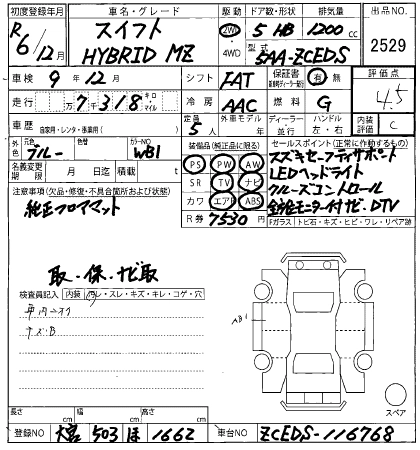 初度登録年月 車名・グレード 駆動 ドア数・形状 排気量 出品NO.
R6/12月 スイフト HYBRID MZ 2WD 4WD 5 HB 1200cc 2529
型式 5AA-ZCEDS
車検 9年12月 シフト FAT 保証書 有 無 評価点
走行 7万7318 キロ・マイル 冷房 AAC 燃料 G 4.5
車歴 自家用・レンタ・事業用( ) 定員 5人 外車モデル 年 ディーラー 並行 ハンドル 左・右 内装評価 C
外色 元色 ブルー 色替 カラーNO WB1 装備品(純正品に限る) セールスポイント(正常に作動するもの)
名義変更期限 月 日迄 積載量 t PS PW AW スズキセーフティサポート
注意事項(欠品・修復・不具合箇所および状態) SR TV ナビ LEDヘッドライト
純正フロアマット カワ エアB ABS クルーズコントロール
R券 7530 全方位モニター付ナビ・DTV
Fガラス トビ石・キズ・ヒビ・ワレ・リペア跡
取・保・ナビ取
検査員記入 内装 ヨゴレ・スレ・キズ・キレ・コゲ・穴
車内ニオイ
キズB
AB1
スペア
長さ cm 幅 cm 高さ cm
登録NO 大宮 503 ほ 1662 車台NO ZCEDS-116768